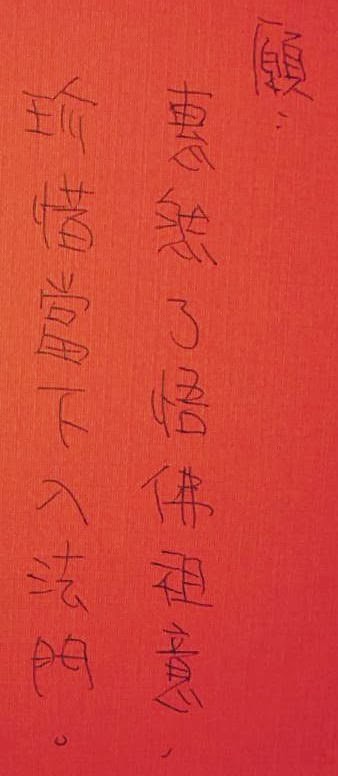 願：
惠然了悟佛祖意，
珍惜當下入法門。